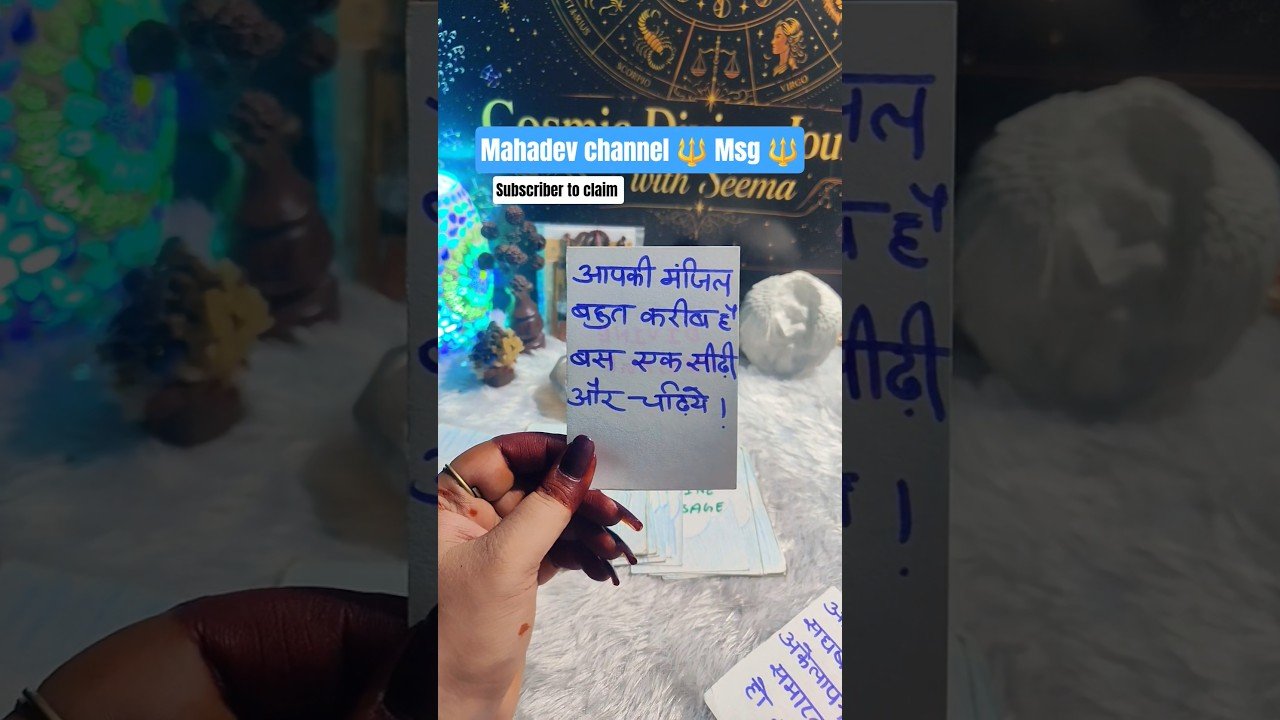 SCORPIO
VIRGO
Cosmic Divine Jou
Mahadev channel 🔱 Msg 🔱
Subscriber to claim
with Seema
आपकी मंजिल
बहुत करीब है
बस एक सीढ़ी
और चढ़िये।
SAGE
अकेलापन